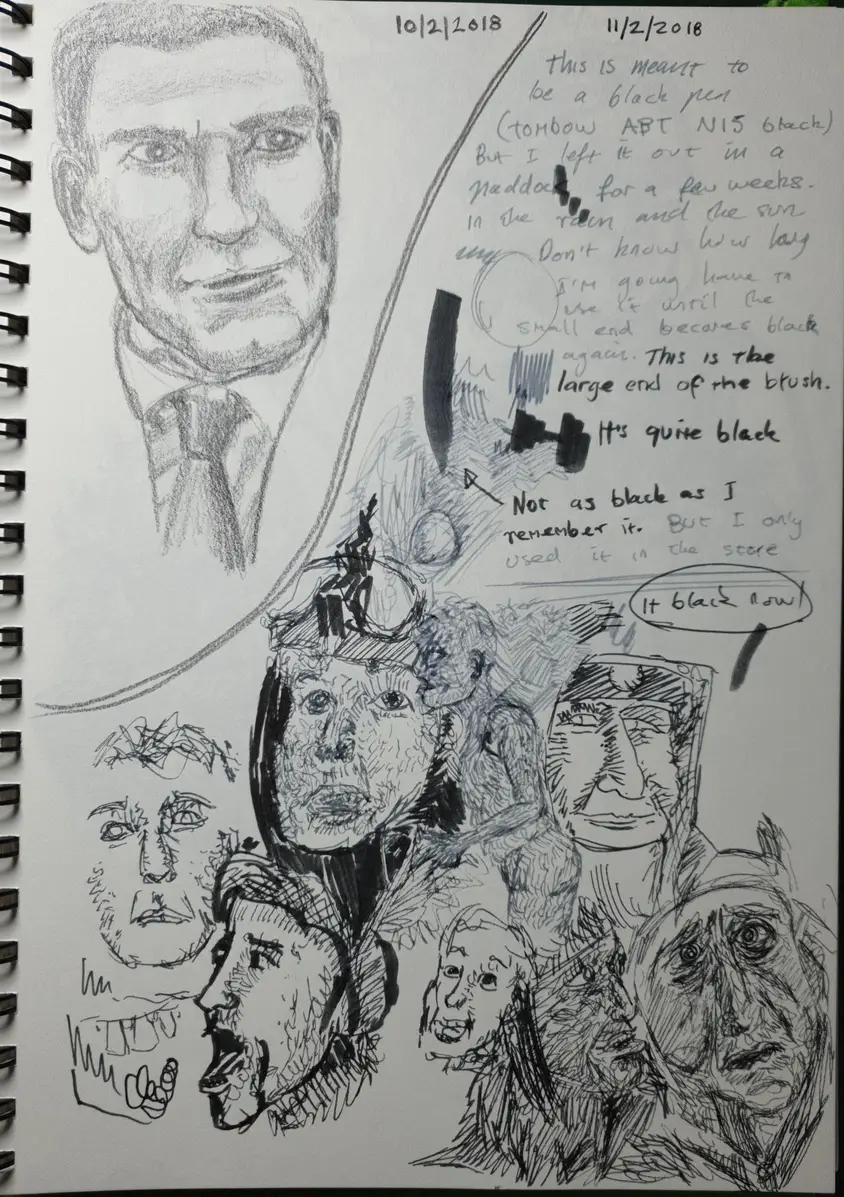 10/2/2018
11/2/2018
This is meant to
be a black pen
(tombow ABT N15 black)
But I left it out in a
paddock for a few weeks.
in the rain and the sun
Don't know how long
I'm going have to
use it until the
small end becomes black
again. This is the
large end of the brush.
It's quite black
Not as black as I
remember it. But I only
used it in the store
It black now!